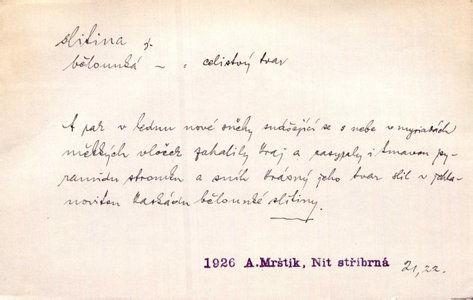 slitina ž.
bělounká – „ celistvý tvar
A pak v lednu nové sněhy snášející se s nebe v myriadách
měkkých vloček zahalily kraj a zasypaly i tmavou py-
ramidu stromku a sníh krásný jeho tvar slil v jehla-
novitou kaskádu bělounké slitiny.
1926 A.Mrštík, Nit stříbrná 21, 22.